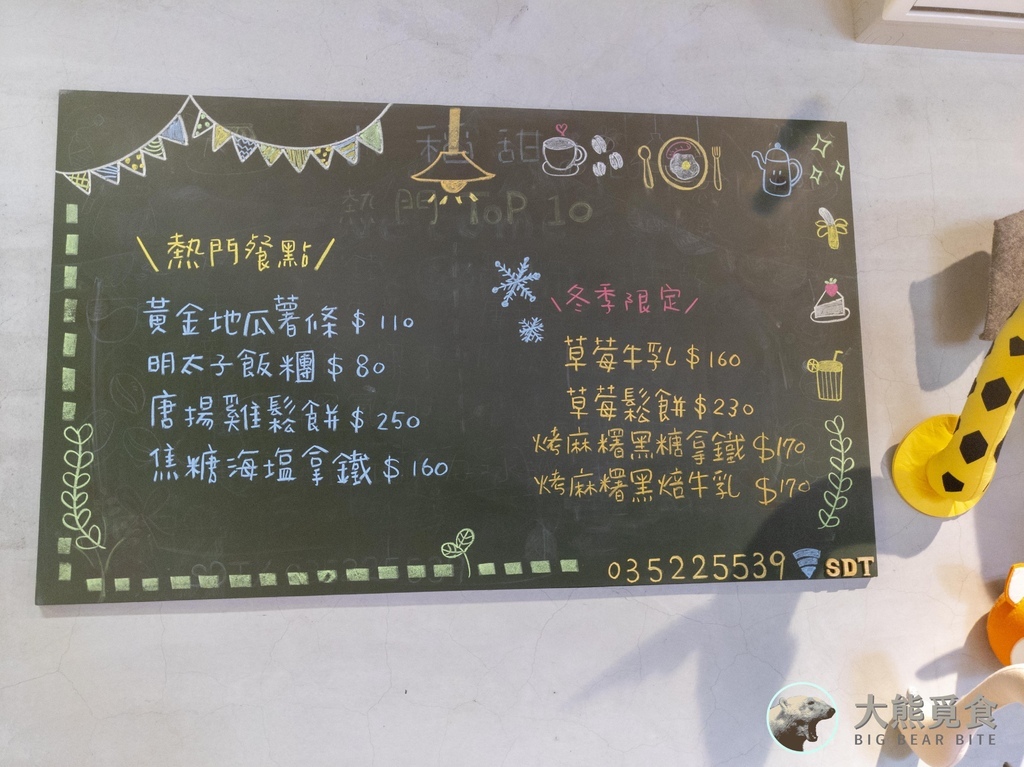 種甜
熱門 ToP 10
\熱門餐點/
黃金地瓜薯條 $ 110
明太子飯糰 $ 80
唐揚雞鬆餅 $ 250
焦糖海塩拿鐵 $ 160
\冬季限定/
草莓牛乳 $ 160
草莓鬆餅 $ 230
烤麻糬黑糖拿鐵 $170
烤麻糬黑焙牛乳 $170
035225539 SDT
大熊覓食
BIG BEAR BITE